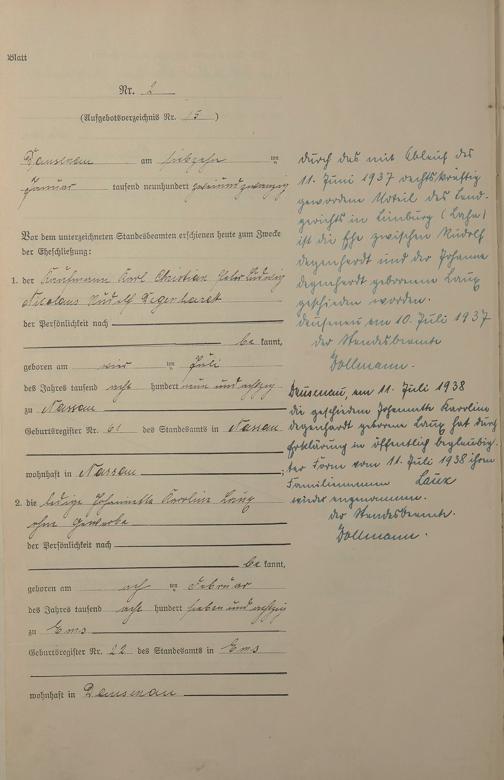 Blatt
Nr. 2
(Aufgebotsverzeichnis Nr. 15)
Dausenau am siebzehn ten
Januar tausend neunhundert zweiundzwanzig
Vor dem unterzeichneten Standesbeamten erschienen heute zum Zwecke
der Eheschließung:
1. der Kaufmann Karl Christian Peter Ludwig
Nicolaus Rudolf Degenhardt
der Persönlichkeit nach
be kannt,
geboren am vier ten Juli
des Jahres tausend acht hundert neun und achtzig
zu Nassau
Geburtsregister Nr. 61 des Standesamts in Nassau
wohnhaft in Nassau ;
2. die ledige Johannette Karoline Laux
ohne Gewerbe
der Persönlichkeit nach
be kannt,
geboren am ach ten Februar
des Jahres tausend acht hundert sieben und achtzig
zu Ems
Geburtsregister Nr. 22 des Standesamts in Ems
wohnhaft in Dausenau
durch das mit Ablauf des
11. Juni 1937 rechtskräftig
gewordene Urteil des Land-
gerichts in Limburg (Lahn)
ist die Ehe zwischen Rudolf
Degenhardt und der Johanna
Degenhardt geborenen Laux
geschieden worden.
Dausenau am 10. Juli 1937
der Standesbeamte
Dollmann.
Dausenau, am 11. Juli 1938
die geschiedene Johannette Karoline
Degenhardt geborene Laux hat durch
Erklärung in öffentlich beglaubig-
ter Form vom 11. Juli 1938 ihren
Familiennamen Laux
wieder angenommen.
der Standesbeamte.
Dollmann.